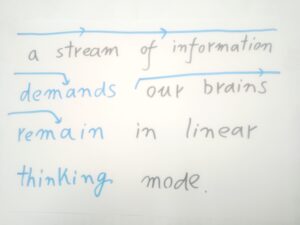 a stream of information
demands our brains
remain in linear
thinking mode.